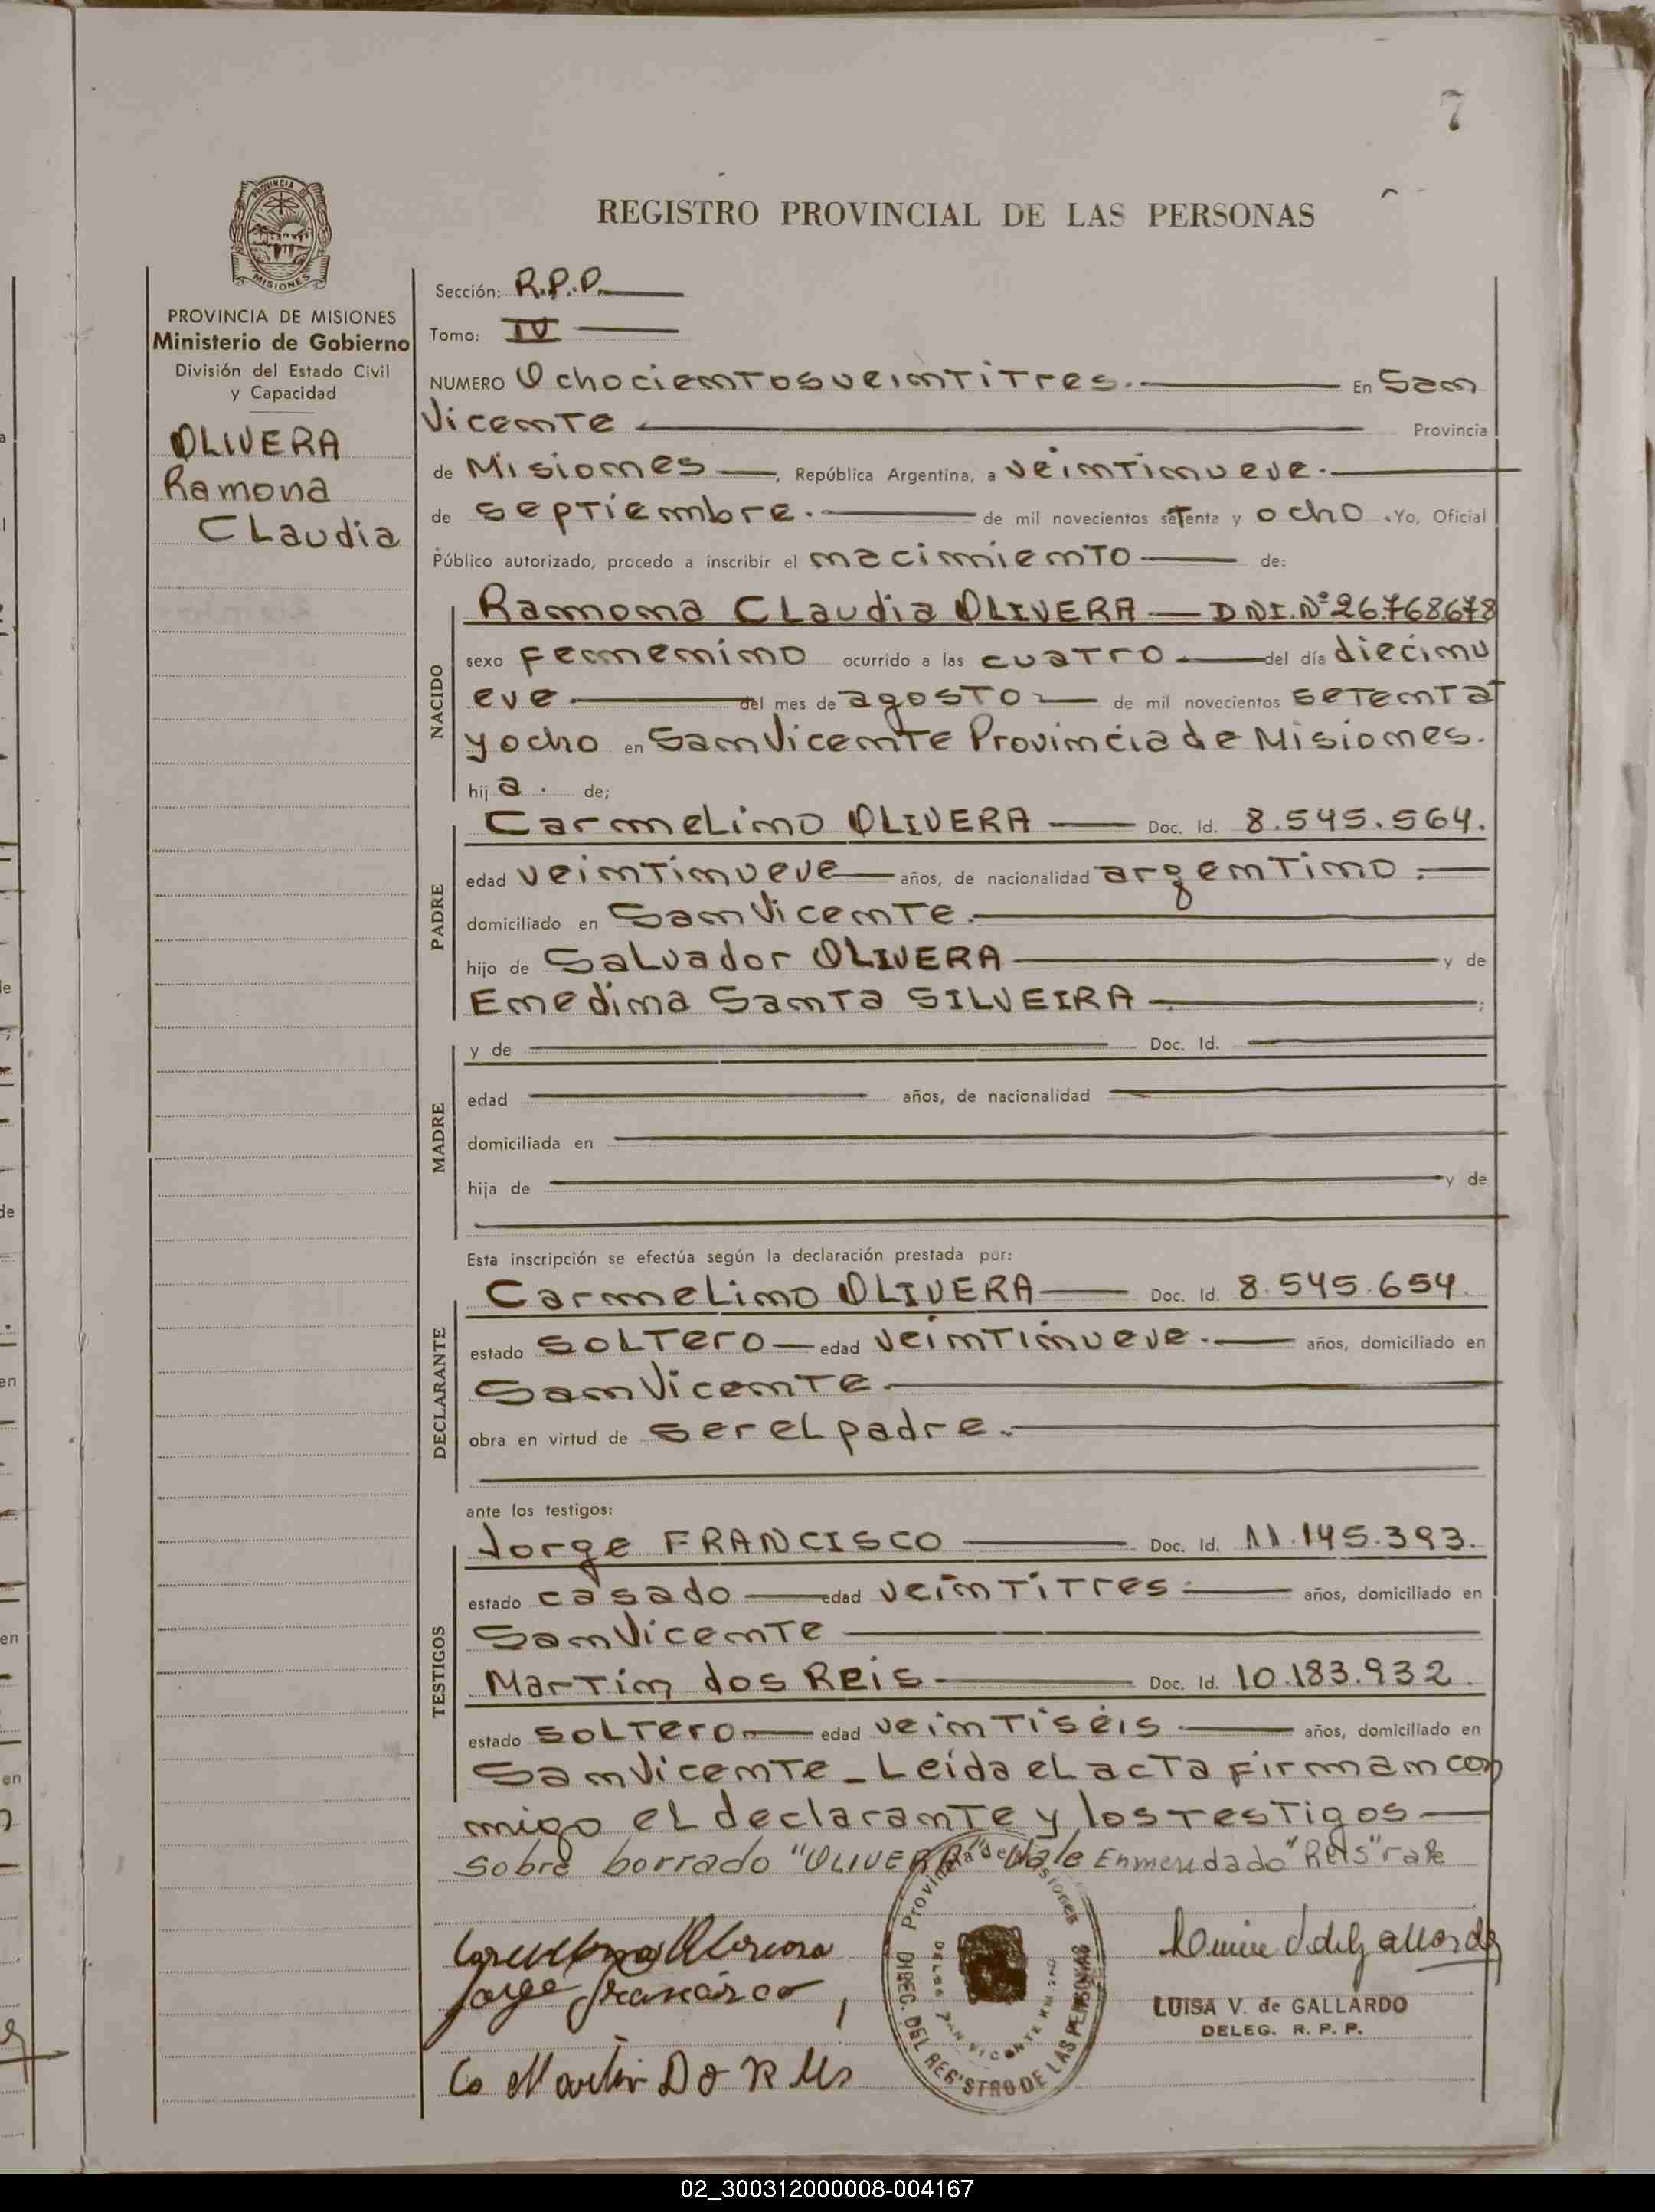 7
REGISTRO PROVINCIAL DE LAS PERSONAS
PROVINCIA DE MISIONES
Ministerio de Gobierno
División del Estado Civil
y Capacidad
OLIVERA
Ramona
Claudia
Sección: R.P.P.
Tomo: IV
NUMERO Ochocientosveintitres. En San
Vicente Provincia
de Misiones, República Argentina, a veintinueve.
de septiembre. de mil novecientos setenta y ocho. Yo, Oficial
Público autorizado, procedo a inscribir el nacimiento de:
NACIDO
Ramona Claudia OLIVERA — DNI. Nº 26.768.678
sexo femenino ocurrido a las cuatro del día diecinu
eve del mes de agosto de mil novecientos setenta
y ocho en San Vicente Provincia de Misiones.
hij a. de;
PADRE
Carmelino OLIVERA — Doc. Id. 8.545.564.
edad veintinueve años, de nacionalidad argentino.
domiciliado en San Vicente.
hijo de Salvador OLIVERA y de
Enedina Santa SILVEIRA ;
MADRE
y de Doc. Id.
edad años, de nacionalidad
domiciliada en
hija de y de
Esta inscripción se efectúa según la declaración prestada por:
DECLARANTE
Carmelino OLIVERA — Doc. Id. 8.545.654.
estado soltero edad veintinueve. años, domiciliado en
San Vicente.
obra en virtud de ser el padre.
ante los testigos:
TESTIGOS
Jorge FRANCISCO Doc. Id. 11.145.393.
estado casado edad veintitres años, domiciliado en
San Vicente
Martin dos Reis Doc. Id. 10.183.932.
estado soltero edad veintiséis. años, domiciliado en
San Vicente _ Leída el acta firman con
migo el declarante y los testigos
Sobre borrado "OLIVERA" Vale Enmendado "Reis" vale
Jorge Francisco
Provincia de Misiones
DIREC. DEL REGISTRO DE LAS PERSONAS
LUISA V. de GALLARDO
DELEG. R. P. P.
02_300312000008-004167